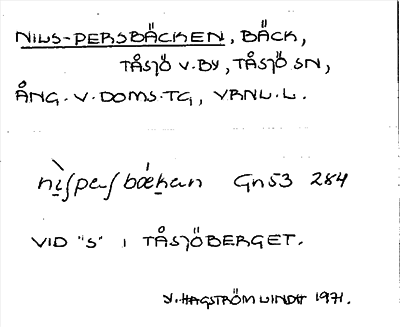 NILS-PERSBÄCKEN, BÄCK,
TÅSJÖ V. BY, TÅSJÖ SN,
ÅNG. V. DOMS. TG, VRNL. L.
nìʃpeʃbǽkan Gn53 284
VID "S" I TÅSJÖBERGET.
V. HAGSTRÖM LINDH 1971.